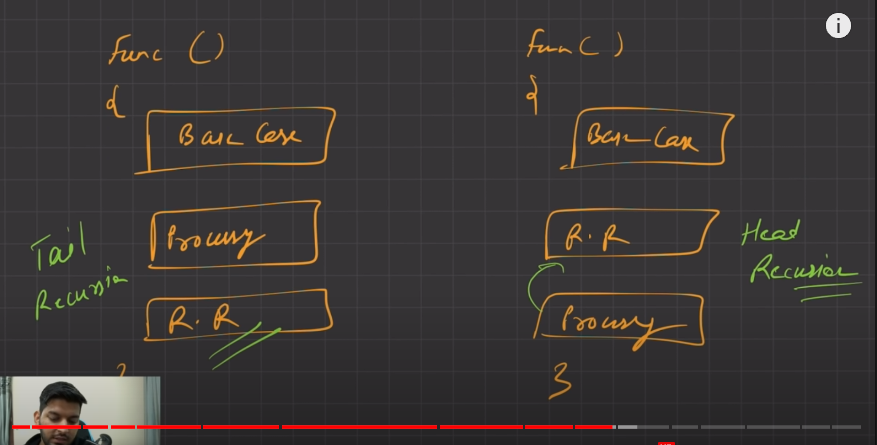 Func ()
{
Base Case
Processing
R.R
Tail
Recursion
Func ( )
{
Base Case
R.R
Processing
}
Head
Recursion
i